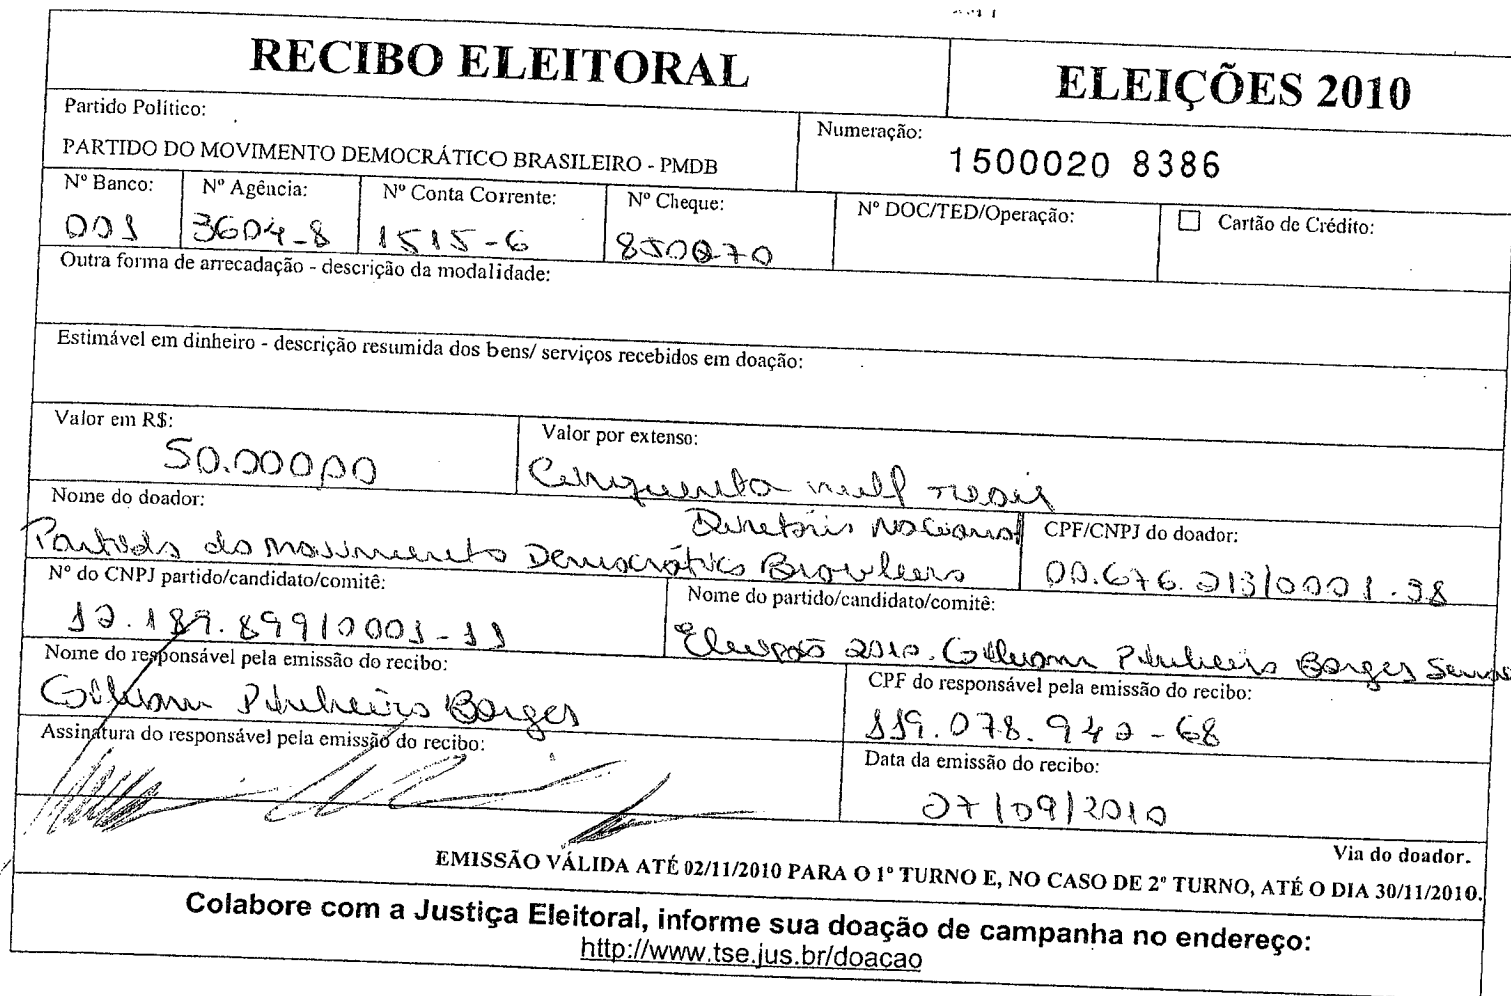 RECIBO ELEITORAL
ELEIÇÕES 2010
Partido Político:
PARTIDO DO MOVIMENTO DEMOCRÁTICO BRASILEIRO - PMDB
Numeração:
1500020 8386
Nº Banco:
001
Nº Agência:
3604-8
Nº Conta Corrente:
1515-6
Nº Cheque:
850070
Nº DOC/TED/Operação:
Cartão de Crédito:
Outra forma de arrecadação - descrição da modalidade:
Estimável em dinheiro - descrição resumida dos bens/ serviços recebidos em doação:
Valor em R$:
50.000,00
Valor por extenso:
Cinquenta mil reais
Nome do doador:
Diretório Nacional
Partido do Movimento Democrático Brasileiro
CPF/CNPJ do doador:
00.676.213/0001-38
Nº do CNPJ partido/candidato/comitê:
12.189.899/0001-11
Nome do partido/candidato/comitê:
Eleição 2010. Gilvam Pinheiro Borges
Nome do responsável pela emissão do recibo:
Gilvam Pinheiro Borges
CPF do responsável pela emissão do recibo:
119.078.942-68
Assinatura do responsável pela emissão do recibo:
Data da emissão do recibo:
27/09/2010
Via do doador.
EMISSÃO VÁLIDA ATÉ 02/11/2010 PARA O 1º TURNO E, NO CASO DE 2º TURNO, ATÉ O DIA 30/11/2010.
Colabore com a Justiça Eleitoral, informe sua doação de campanha no endereço:
http://www.tse.jus.br/doacao